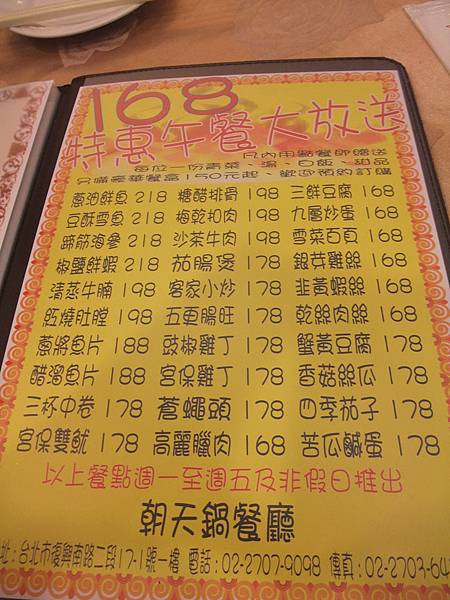 168
特惠午餐大放送
凡內用點餐即贈送
每位一份青菜、湯、白飯、甜品
另備豪華餐盒150元起、歡迎預約訂購
蔥油鮮魚 218 糖醋排骨 198 三鮮豆腐 168
豆酥雪魚 218 梅乾扣肉 198 九層炒蛋 168
蹄筋海參 218 沙茶牛肉 198 雪菜百頁 168
椒鹽鮮蝦 218 茄腸煲 178 銀芽雞絲 168
清蒸牛腩 198 客家小炒 178 韭黃蝦絲 168
紅燒肚膛 198 五更腸旺 178 乾絲肉絲 168
蔥將魚片 188 豉椒雞丁 178 蟹黃豆腐 178
醋溜魚片 188 宮保雞丁 178 香菇絲瓜 178
三杯中卷 178 蒼蠅頭 178 四季茄子 178
宮保雙魷 178 高麗臘肉 168 苦瓜鹹蛋 178
以上餐點週一至週五及非假日推出
朝天鍋餐廳
址：台北市復興南路二段17-1號一樓 電話：02-2707-9098 傳真：02-2703-64